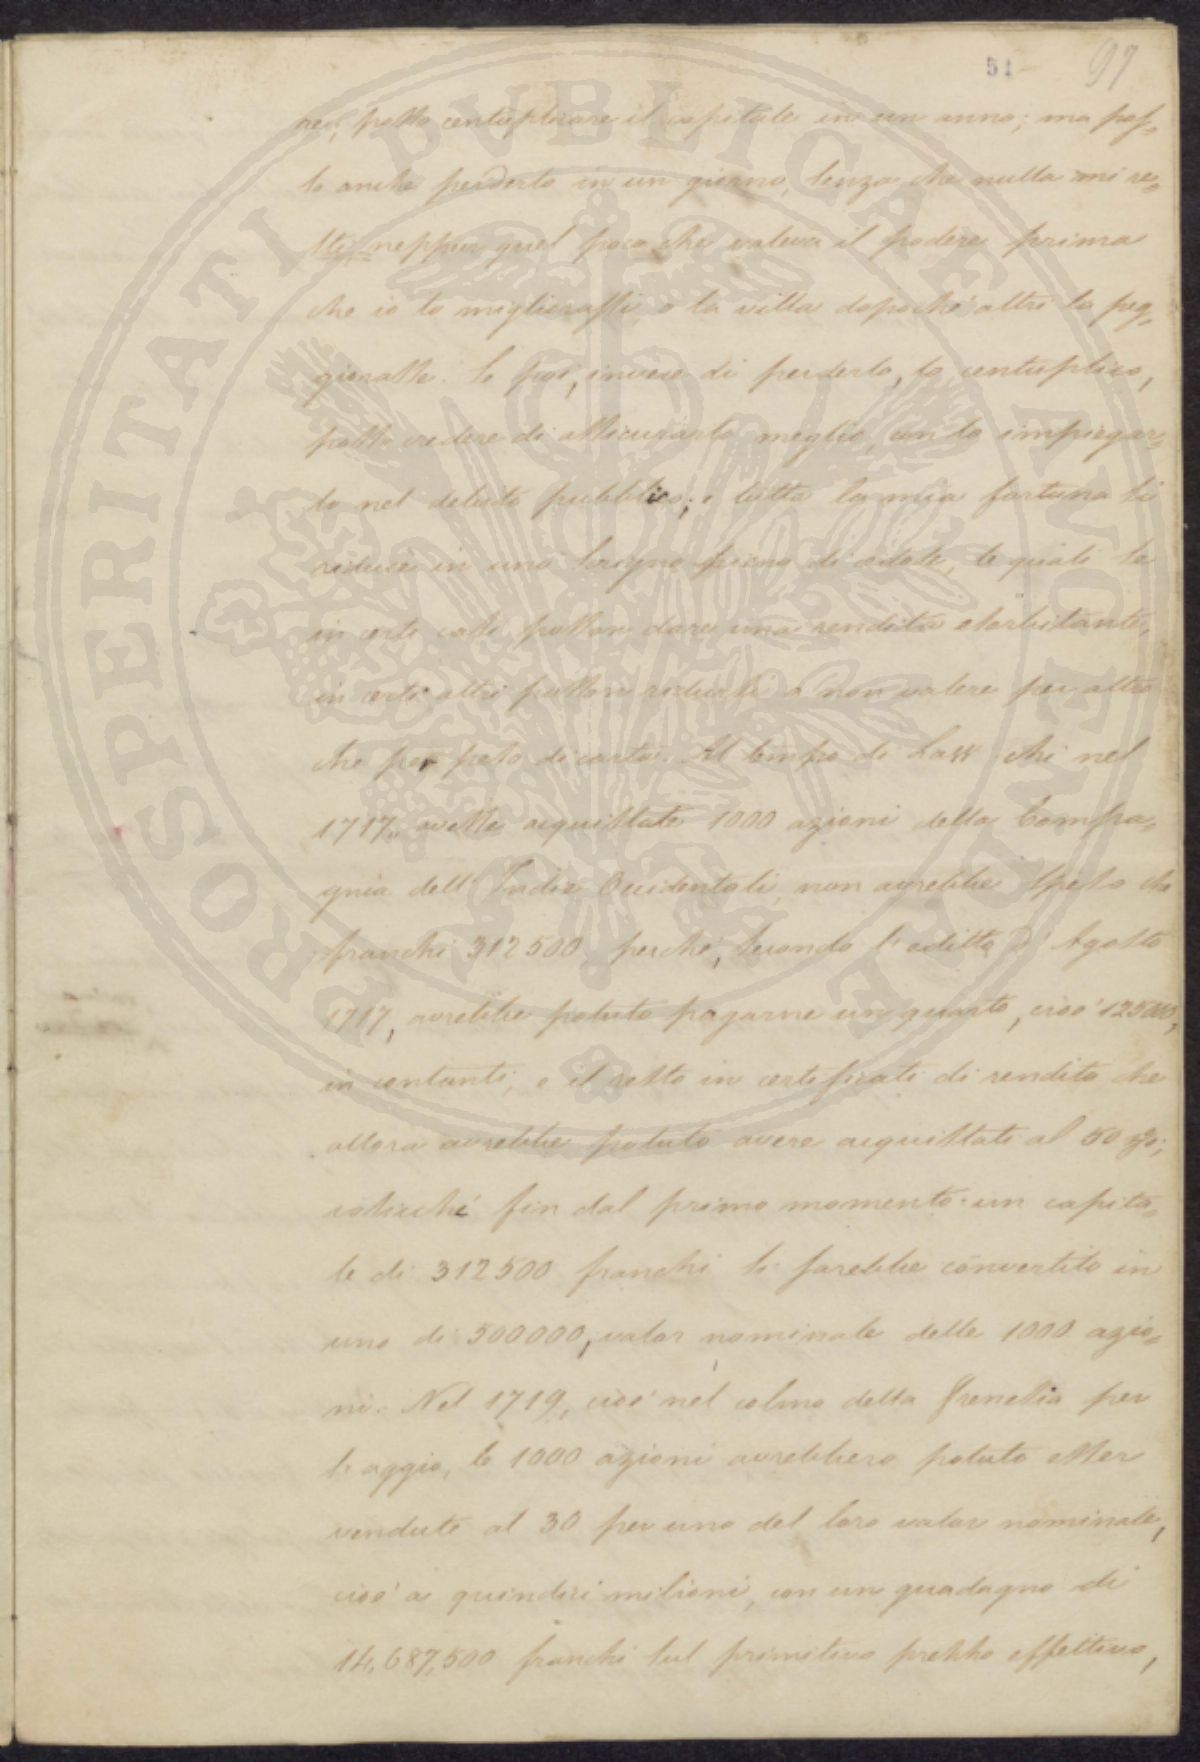 51 97
rei, posso centuplicare il capitale in un anno; ma pos=
so anche perderlo in un giorno, senza che nulla mi re=
sti, neppur quel poco che valeva il podere prima
che io lo migliorassi, o la villa dopoché altri la peg=
giorasse. Se poi, invece di perderlo, lo centuplico,
posso credere di assicurarlo meglio, con lo impiegar=
lo nel debito pubblico; e tutta la mia fortuna si
riduce in uno scrigno pieno di cedole, le quali se
in certi casi posson dare una rendita esorbitante,
in certi altri posson ridursi a non valere per altro
che per peso di carta. Al tempo di Law chi nel
1717 avesse acquistate 1000 azioni della Compa=
gnia dell' Indie Occidentali, non avrebbe speso che
franchi 312500 perché, secondo l'editto d' Agosto
1717, avrebbe potuto pagarne un quarto, cioè 125000,
in contanti, e il resto in certificati di rendita che
allora avrebbe potuto avere acquistati al 50 %;
cosicché fin dal primo momento un capita=
le di 312500 franchi si sarebbe convertito in
uno di 500000, valor nominale delle 1000 azio=
ni. Nel 1719, cioè nel colmo della frenesia per
l'aggio, le 1000 azioni avrebbero potuto esser
vendute al 30 per uno del loro valor nominale,
cioè a quindici milioni, con un guadagno di
14,687,500 franchi sul primitivo prezzo effettivo,
PROSPERITATI PVBLICAE AVGENDAE